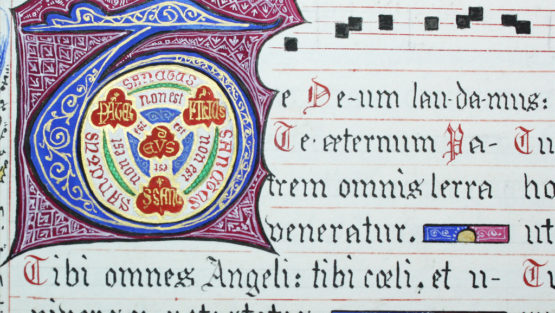 SANCTUS
PATER non est FILIUS
est est
SANCTUS non est DEVS non est SANCTUS
est
Te De-um lau-da-mus:
Te æternum Pa- Tu
trem omnis terra ho
veneratur. ut
Tibi omnes Angeli: tibi cœli, et u- Tu